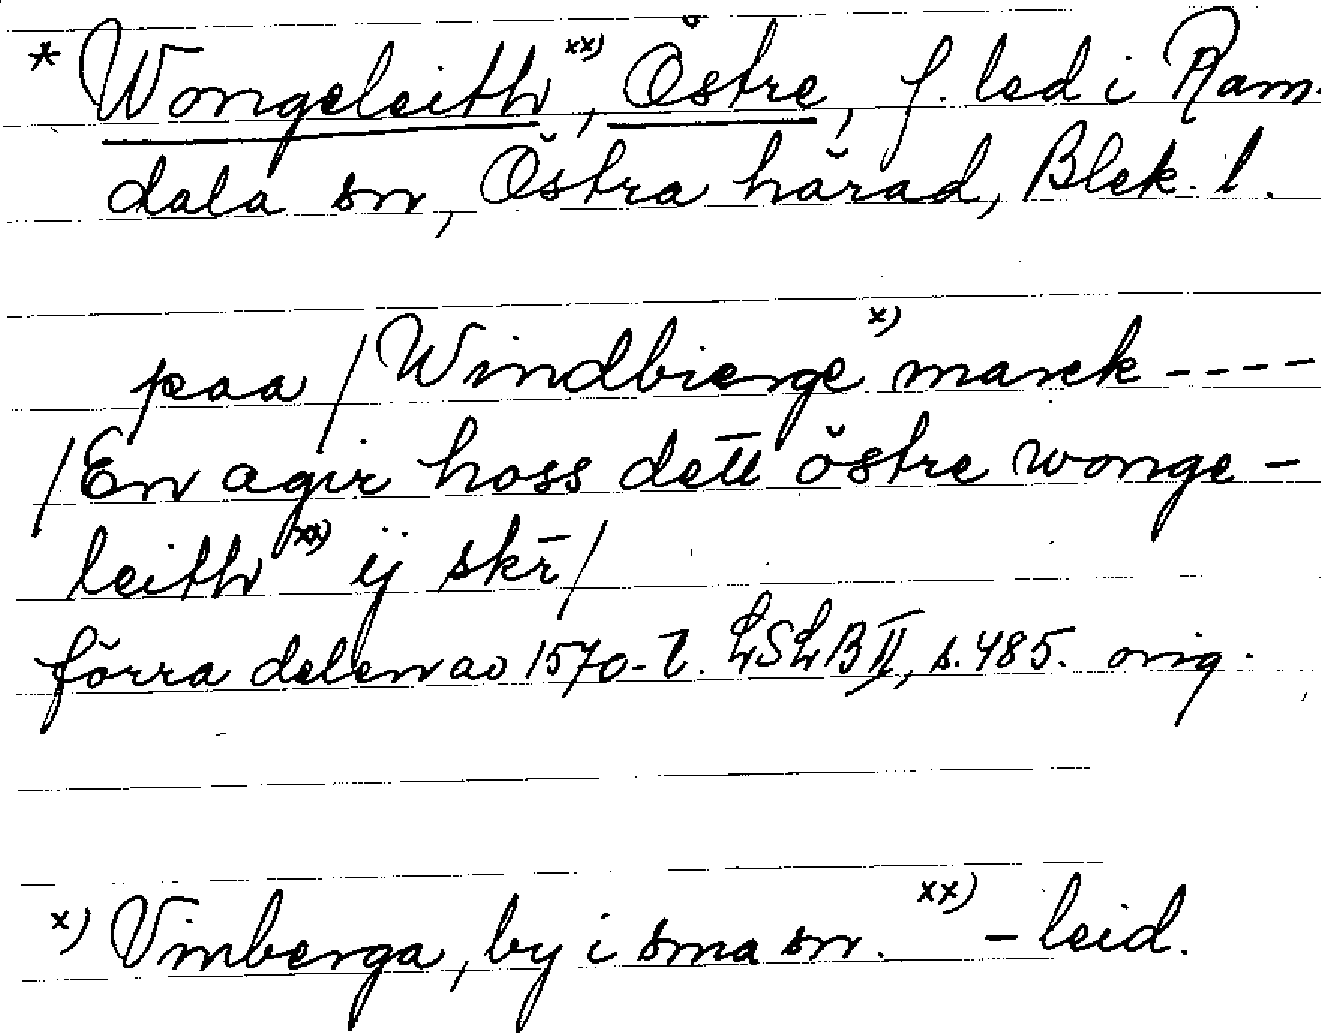 * Wongeleith xx), Östre, f. led i Ram-
dala sn, Östra härad, Blek. l.
paa / Windbierge x) marck ----
/ En agir hoss dett östre wonge-
leith xx) ij skr̄ /
förra delen av 1570-t. LSLB II, s. 485. orig.
x) Vinberga, by i sma sn. xx) - leid.